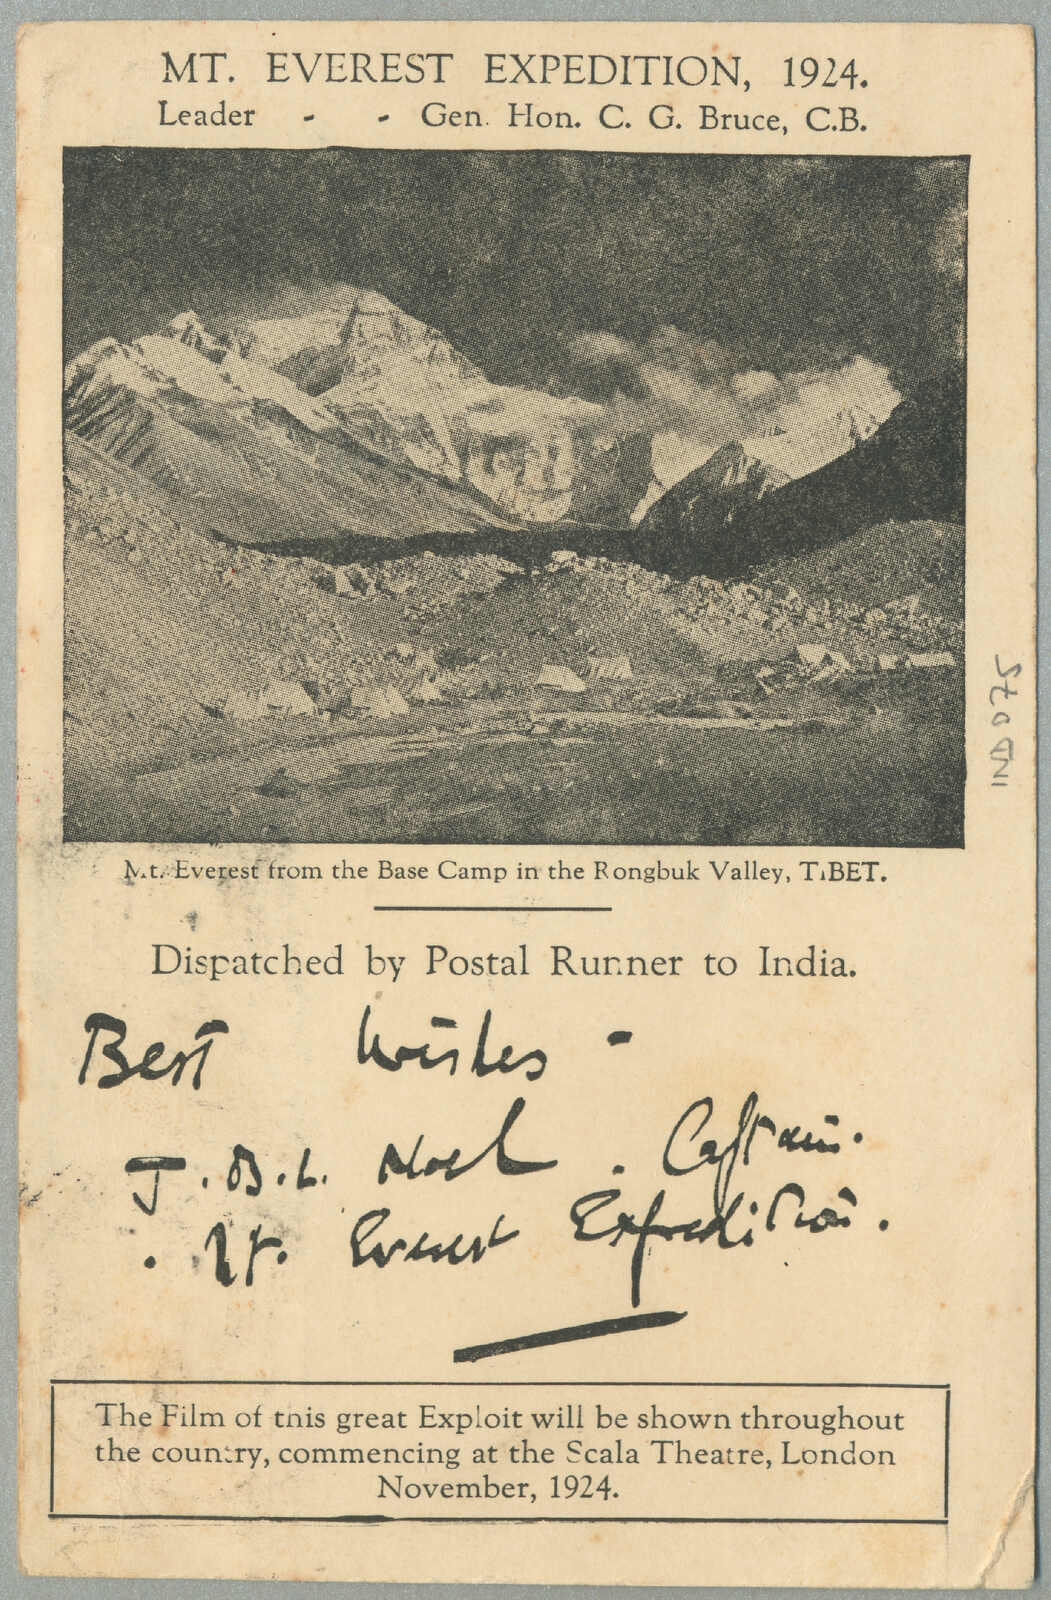 MT. EVEREST EXPEDITION, 1924.
Leader - - Gen. Hon. C. G. Bruce, C.B.
Mt. Everest from the Base Camp in the Rongbuk Valley, TIBET.
Dispatched by Postal Runner to India.
Best Wishes -
J. B. L. Noel . Captain.
. Mt. Everest Expedition.
The Film of this great Exploit will be shown throughout
the country, commencing at the Scala Theatre, London
November, 1924.